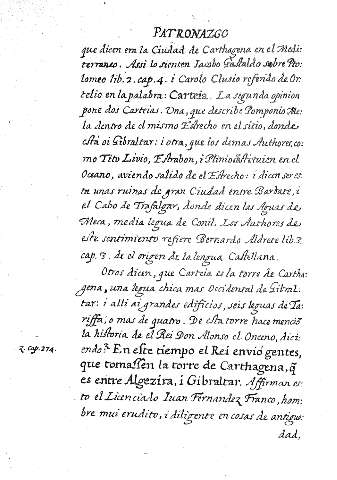 PATRONAZGO
que dicen era la Ciudad de Carthagena en el Medi-
terraneo. Assi lo sienten Iacobo Gastaldo sobre Pto-
lomeo lib. 2. cap. 4. i Carolo Clusio referido de Or-
telio en la palabra: Carteia. La segunda opinion
pone dos Carteias. Una, que describe Pomponio Me-
la dentro de el mismo Estrecho en el sitio, donde
està oi Gibraltar: i otra, que los demas Authores, co-
mo Tito Livio, Estrabon, i Plinio constituien en el
Oceano, aviendo salido de el Estrecho: i dicen ser es-
tar unas ruinas de gran Ciudad entre Barbate, i
el Cabo de Trafalgar, donde dicen las Aguas de
Meca, media legua de Conil. Los Authores de
este sentimiento refiere Bernardo Aldrete lib. 3.
cap. 3. de el origen de la lengua Castellana.
Otros dicen, que Carteia es la torre de Cartha-
gena, una legua chica mas Occidental de Gibral-
tar: i alli ai grandes edificios, seis leguas de Ta-
riffa, o mas de quatro. De esta torre hace menciō
la historia de el Rei Don Alonso el Onceno, dici-
2. cap. 274. endo: En este tiempo el Rei envió gentes,
que tomassen la torre de Carthagena, q̃
es entre Algezira, i Gibraltar. Affirman es-
to el Licenciado Iuan Fernandez Franco, hom-
bre mui erudito, i diligente en cosas de antigue-
dad,